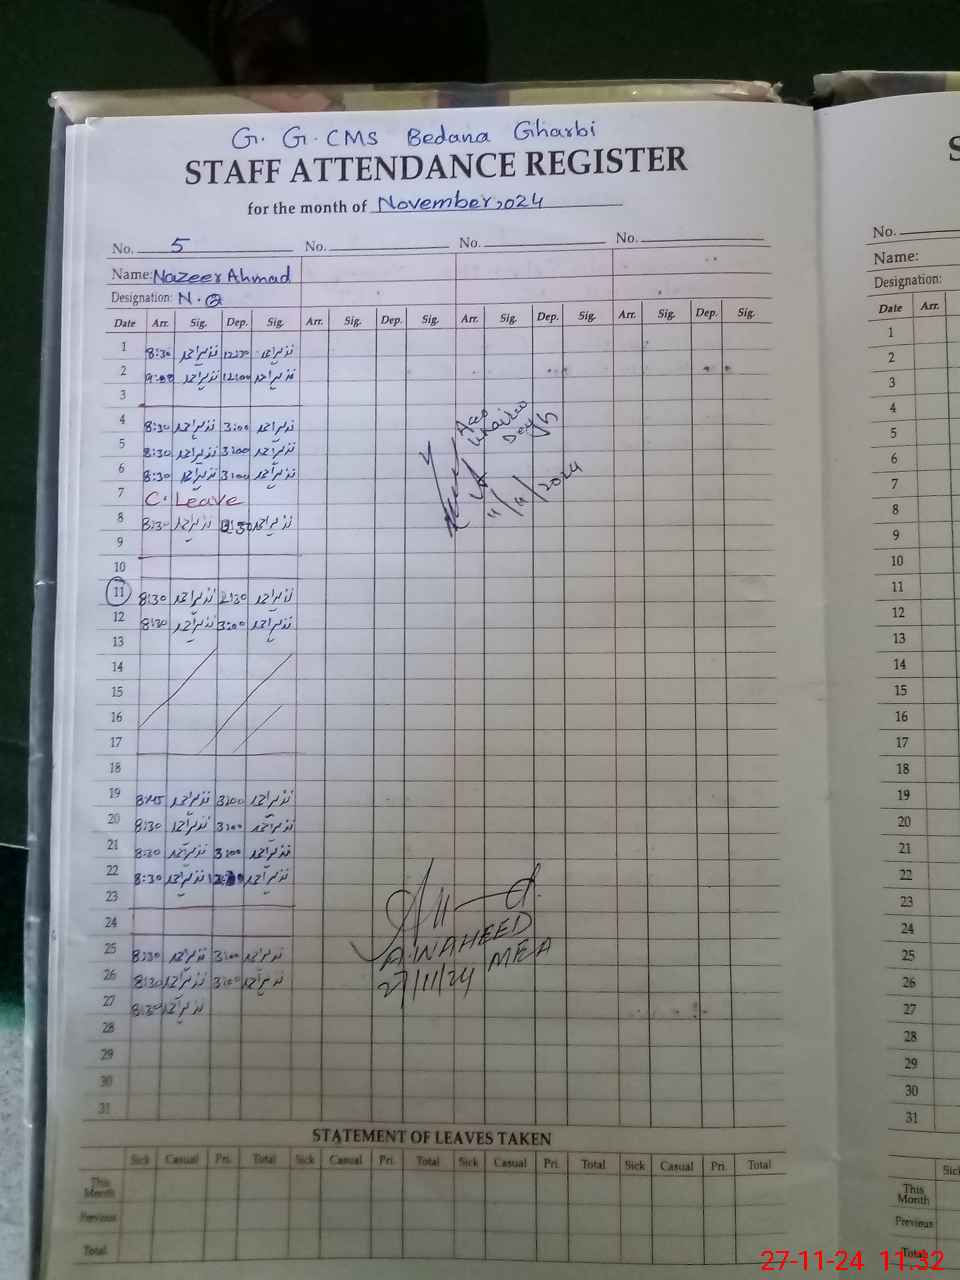 G. G. CMS Bedana Gharbi
STAFF ATTENDANCE REGISTER
for the month of November,024
No. 5 No. No. No.
Name: Nazeer Ahmad
Designation: N.Q
Date Arr. Sig. Dep. Sig. Arr. Sig. Dep. Sig. Arr. Sig. Dep. Sig. Arr. Sig. Dep. Sig.
1 8:30 نذیر احمد 12:30 نذیر احمد
2 9:00 نذیر احمد 12:00 نذیر احمد
3
4 8:30 نذیر احمد 3:00 نذیر احمد
5 8:30 نذیر احمد 3:00 نذیر احمد
6 8:30 نذیر احمد 3:00 نذیر احمد
7 C. Leave
8 8:30 نذیر احمد نذیر احمد
9
10
11 8:30 نذیر احمد 2:30 نذیر احمد
12 8:30 نذیر احمد 3:00 نذیر احمد
13
14
15
16
17
18
19 8:45 نذیر احمد 3:00 نذیر احمد
20 8:30 نذیر احمد 3:00 نذیر احمد
21 8:30 نذیر احمد 3:00 نذیر احمد
22 8:30 نذیر احمد نذیر احمد
23
24
25 8:30 نذیر احمد 3:00 نذیر احمد
26 8:30 نذیر احمد 3:00 نذیر احمد
27 8:30 نذیر احمد
28
29
30
31
11/11/2024
A.WAHEED
27/11/24 MEA
STATEMENT OF LEAVES TAKEN
Sick Casual Pri. Total Sick Casual Pri. Total Sick Casual Pri. Total Sick Casual Pri. Total
This Month
Previous
Total
S
No.
Name:
Designation:
Date Arr.
1
2
3
4
5
6
7
8
9
10
11
12
13
14
15
16
17
18
19
20
21
22
23
24
25
26
27
28
29
30
31
Sick
This Month
Previous
Total
27-11-24 11:32